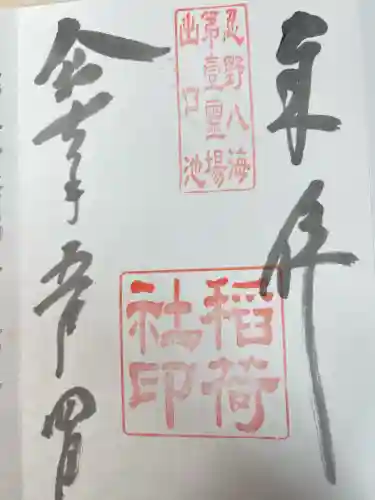 奉拝
忍野八海
第壹霊場
出口池
稲荷
社印
五月四日